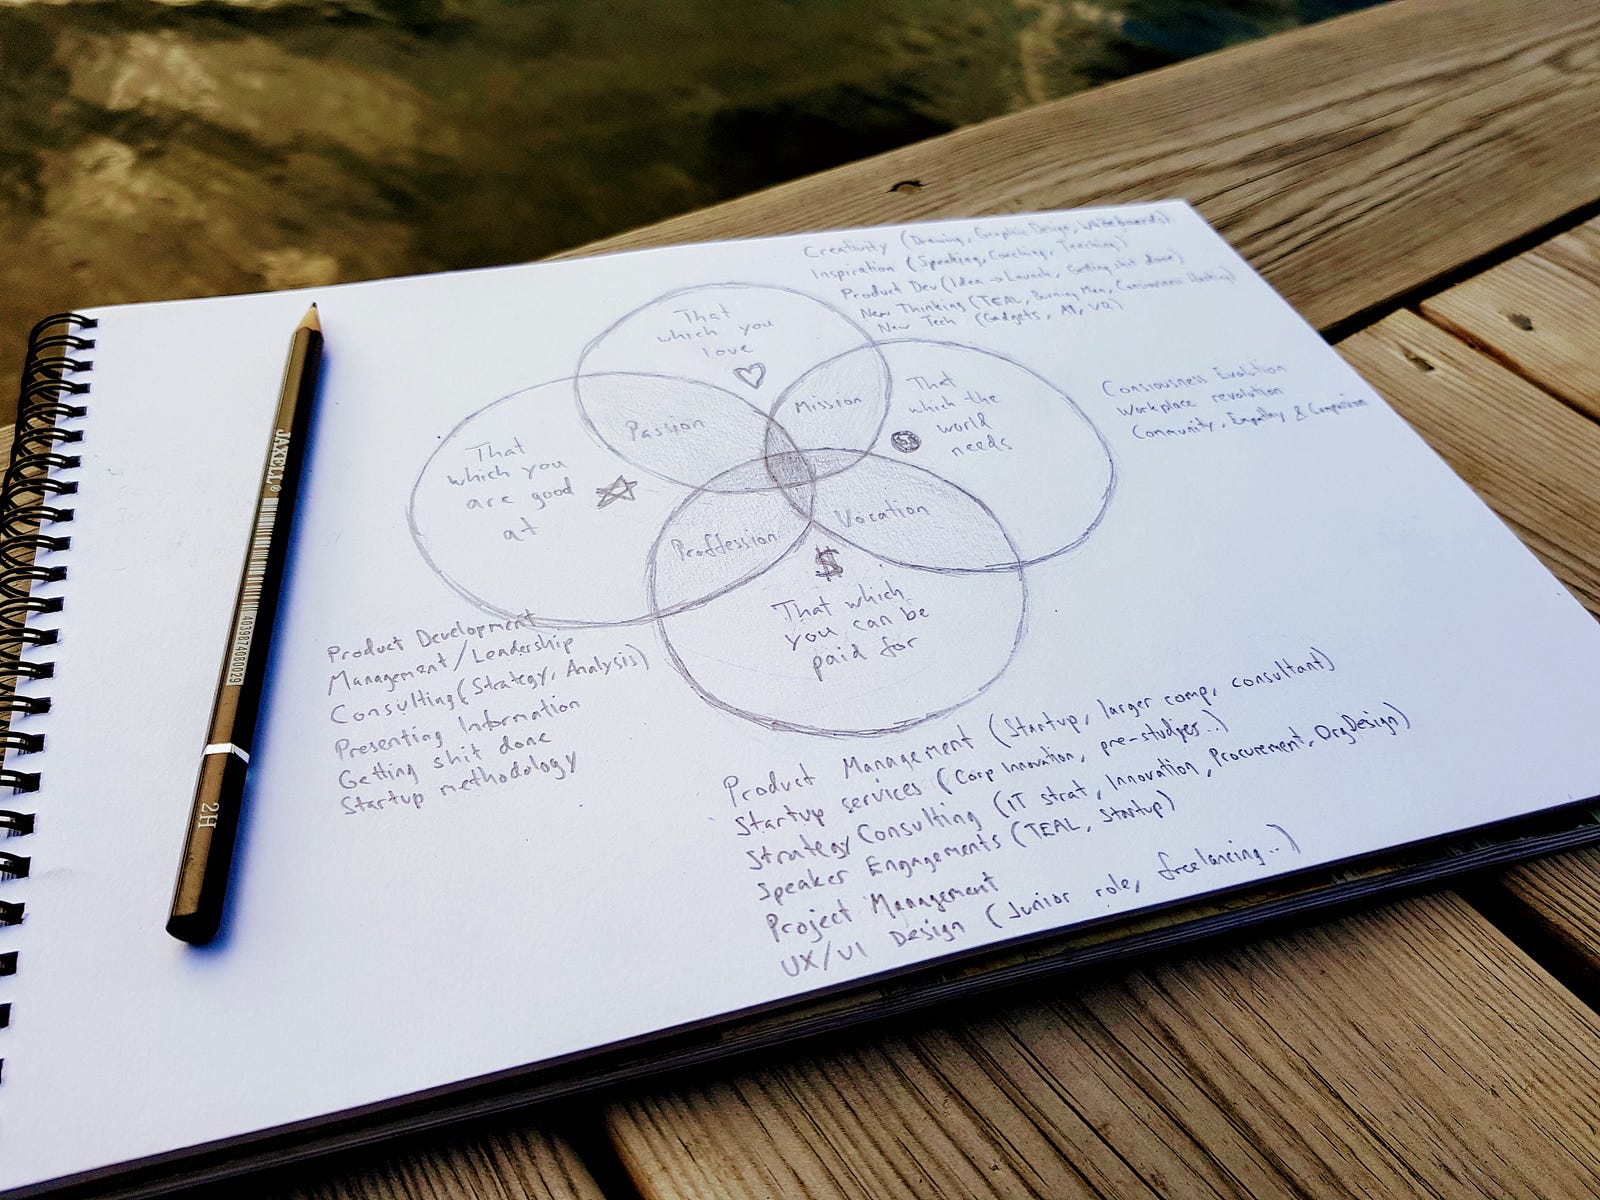 Creativity (Drawing, Graphic Design, Whiteboards)
Inspiration (Speaking, Coaching, Teaching)
Product Dev (Idea → Launch, Getting shit done)
New Thinking (TEAL, Burning Man, Consiousness
New Tech (Gadgets, AI, VR)
That
which you
love
Mission
Passion
That
which the
world
needs
Consiousness Evolution
Workplace revolution
Community, Empathy & Compassion
That
which you
are good
at
Vocation
Proffession
$
That which
you can be
paid for
Product Development
Management/Leadership
Consulting (Strategy, Analysis)
Presenting Information
Getting shit done
Startup methodology
Product Management (Startup, larger comp, consultant)
Startup services (Corp Innovation, pre-studies..)
Strategy Consulting (IT strat, Innovation, Procurement, OrgDesign)
Speaker Engagements (TEAL, Startup)
Project Management
UX/UI Design (Junior role, freelancing..)
JAXELL®
4039874080029
2H